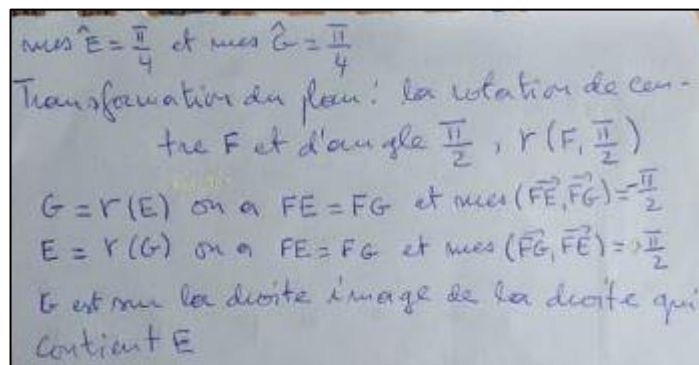 mes Ê = π/4 et mes Ĝ = π/4
Transformation du plan : la rotation de cen-
tre F et d'angle π/2, r(F, π/2)
G = r(E) on a FE = FG et mes(FE→, FG→) = -π/2
E = r(G) on a FE = FG et mes(FG→, FE→) = π/2
G est sur la droite image de la droite qui
contient E